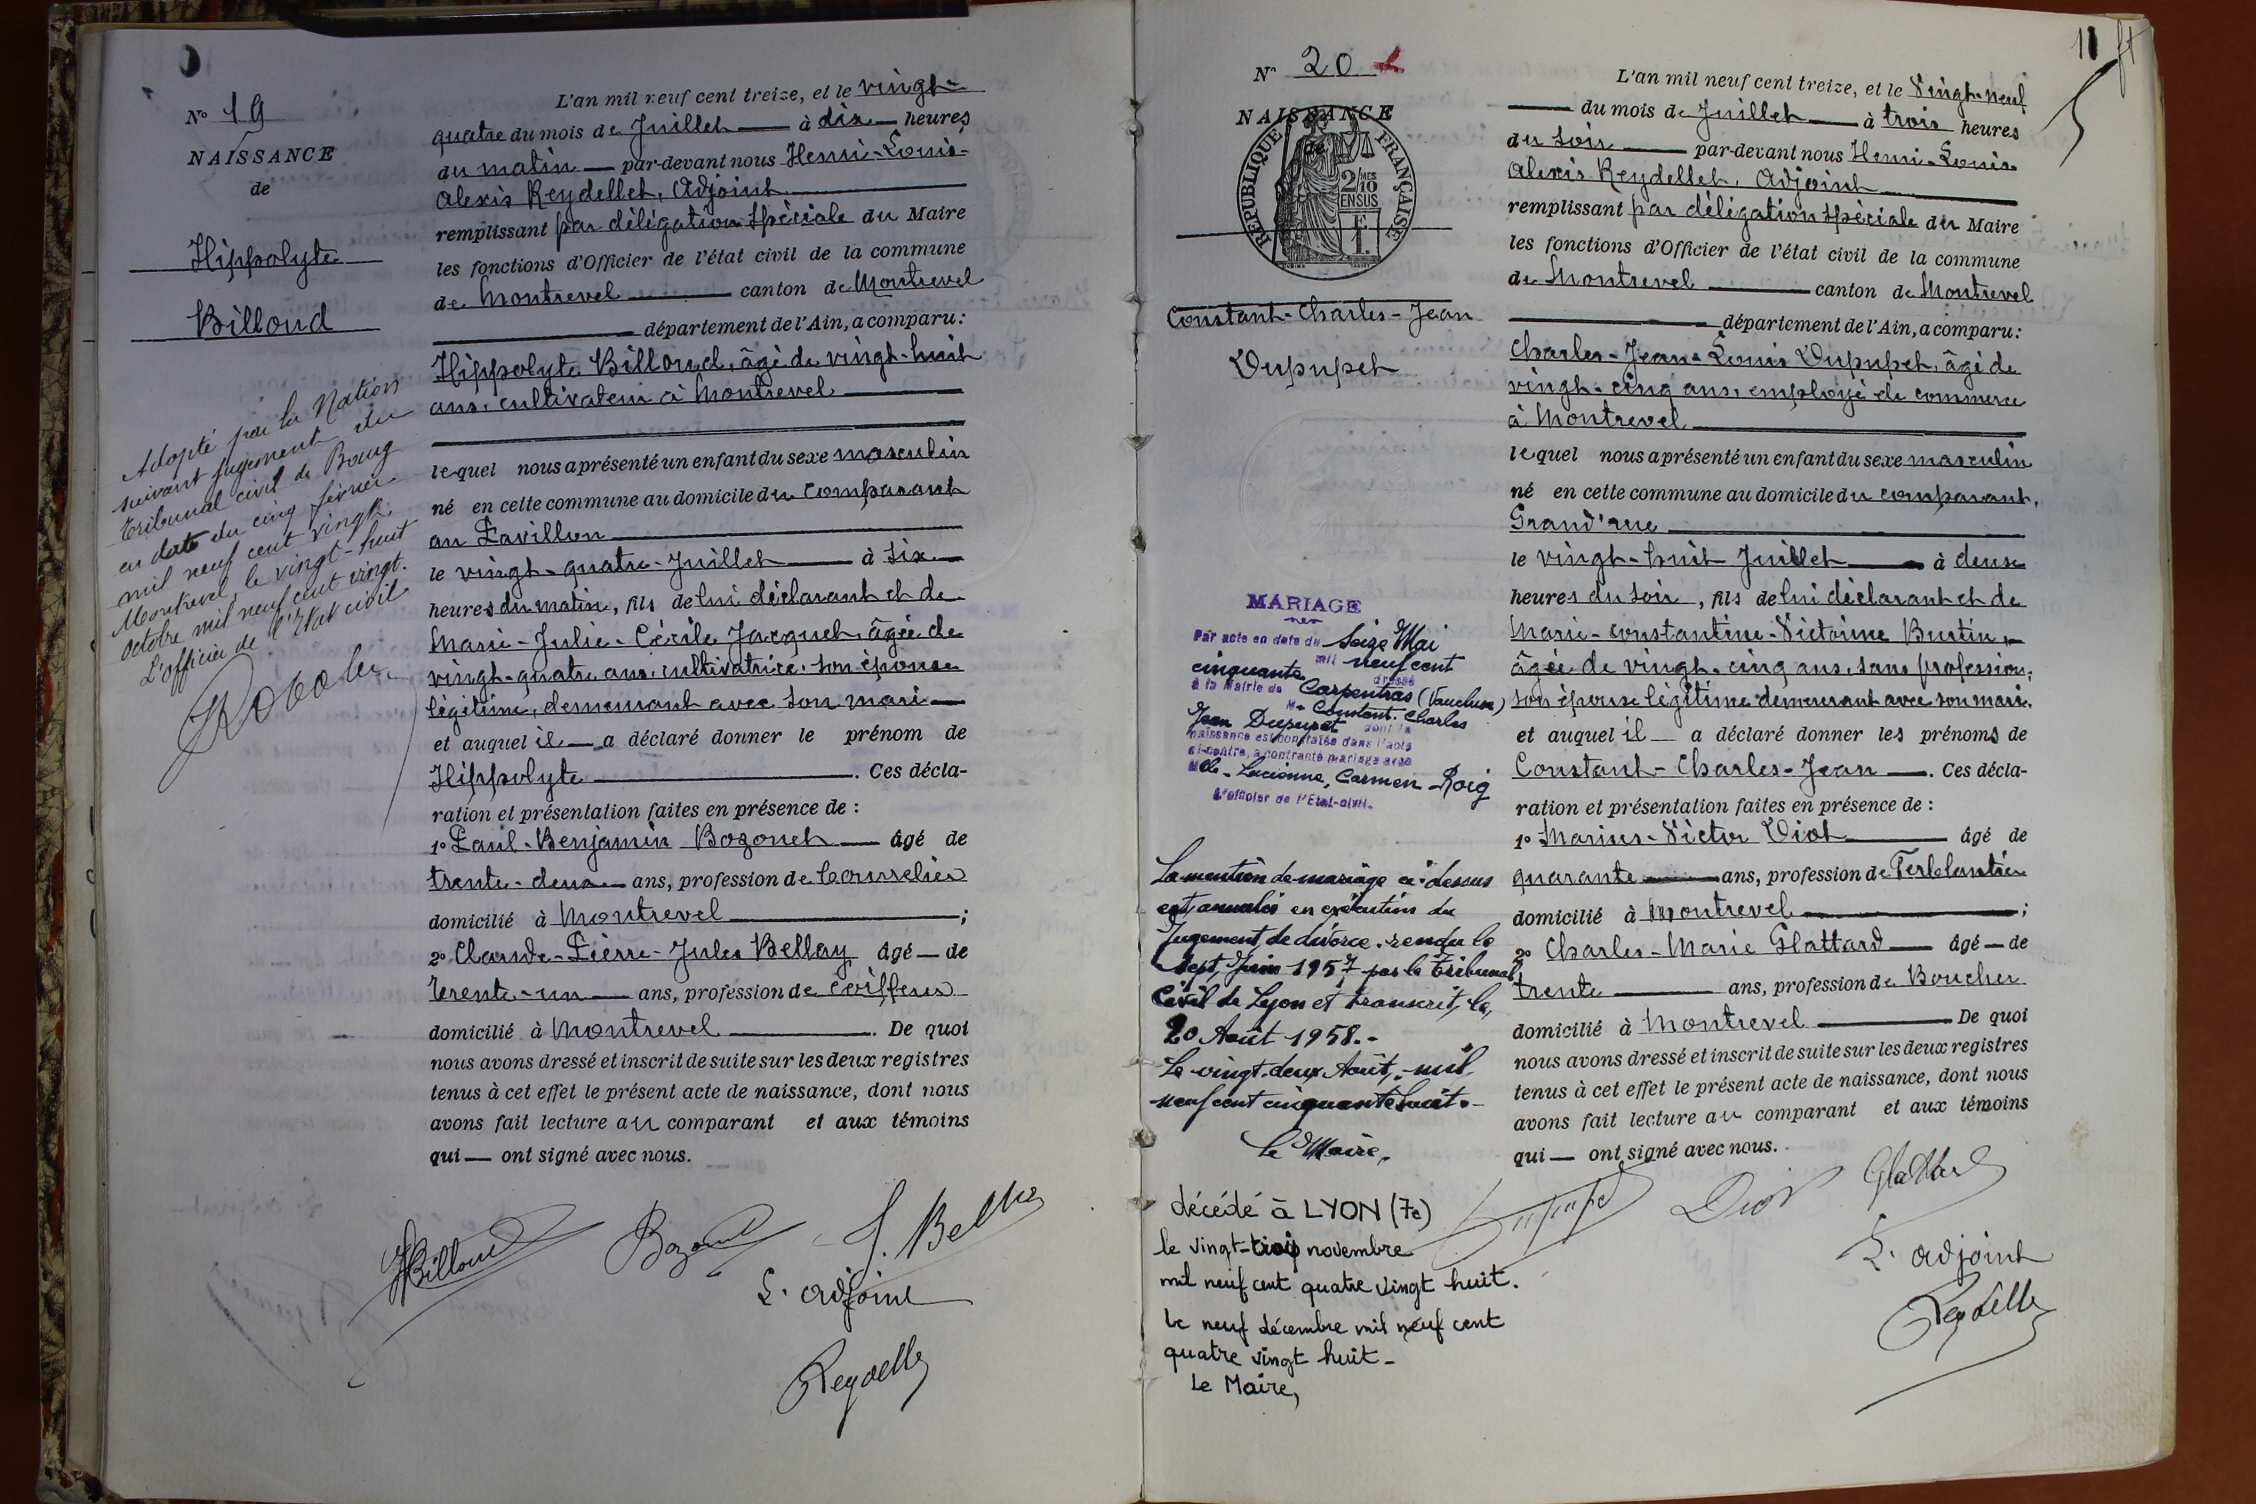 No 19
NAISSANCE
de
Hippolyte
Billoud
Adopté par la Nation
suivant jugement du
tribunal civil de Bourg
en date du cinq février
mil neuf cent vingt.
Montrevel, le vingt-huit
octobre mil neuf cent vingt.
L'officier de l'Etat civil
L'an mil neuf cent treize, et le vingt-
quatre du mois de Juillet à dix heures
du matin par-devant nous Henri-Louis-
Alexis Reydellet, Adjoint
remplissant par délégation spéciale du Maire
les fonctions d'Officier de l'état civil de la commune
de Montrevel canton de Montrevel
département de l'Ain, a comparu:
Hippolyte Billoud, âgé de vingt-huit
ans, cultivateur à Montrevel
lequel nous a présenté un enfant du sexe masculin
né en cette commune au domicile du comparant
au Pavillon
le vingt-quatre Juillet à six
heures du matin, fils de lui déclarant et de
Marie-Julie-Cécile Jacquet, âgée de
vingt-quatre ans, cultivatrice, son épouse
légitime, demeurant avec son mari
et auquel il a déclaré donner le prénom de
Hippolyte. Ces décla-
ration et présentation faites en présence de :
1o Paul-Benjamin Bozonet âgé de
trente-deux ans, profession de Bourrelier
domicilié à Montrevel ;
2o Claude-Pierre-Jules Bellay âgé de
trente-un ans, profession de coiffeur
domicilié à Montrevel. De quoi
nous avons dressé et inscrit de suite sur les deux registres
tenus à cet effet le présent acte de naissance, dont nous
avons fait lecture au comparant et aux témoins
qui ont signé avec nous.
HBilloud Bozonet J. Bellay
L'adjoint
Reydellet
11
No 20
NAISSANCE
de
RÉPUBLIQUE FRANÇAISE
2/10 MES
EN SUS
1 F.
Constant-Charles-Jean
Dupupet
MARIAGE
Par acte en date du Seize Mai
mil neuf cent
cinquante dressé
à la Mairie de Carpentras (Vaucluse)
Mr Constant. Charles
Jean Dupupet dont la
naissance est constatée dans l'acte
ci-contre, a contracté mariage avec
Melle Lucienne, Carmen Roig
L'officier de l'Etat-civil.
La mention de mariage ci-dessus
est annulée en exécution du
Jugement de divorce rendu le
sept Juin 1957 par le Tribunal
Civil de Lyon et transcrit, le
20 Août 1958.-
Le vingt-deux Août, mil
neuf cent cinquante huit.-
Le Maire,
décédé à LYON (7e)
le vingt-trois novembre
mil neuf cent quatre vingt huit.
Le neuf décembre mil neuf cent
quatre vingt huit-
Le Maire,
L'an mil neuf cent treize, et le Vingt-neuf
du mois de Juillet à trois heures
du soir par-devant nous Henri-Louis-
Alexis Reydellet, Adjoint
remplissant par délégation spéciale du Maire
les fonctions d'Officier de l'état civil de la commune
de Montrevel canton de Montrevel
département de l'Ain, a comparu:
Charles-Jean-Louis Dupupet, âgé de
vingt-cinq ans, employé de commerce
à Montrevel
lequel nous a présenté un enfant du sexe masculin
né en cette commune au domicile du comparant,
Grand'rue
le vingt-huit Juillet à deux
heures du soir, fils de lui déclarant et de
Marie-Constantine-Victorine Burtin,
âgée de vingt-cinq ans, sans profession,
son épouse légitime demeurant avec son mari.
et auquel il a déclaré donner les prénoms de
Constant-Charles-Jean. Ces décla-
ration et présentation faites en présence de :
1o Marius-Victor Diot âgé de
quarante ans, profession de Ferblantier
domicilié à Montrevel ;
2o Charles-Marie Glattard âgé de
trente ans, profession de Boucher
domicilié à Montrevel De quoi
nous avons dressé et inscrit de suite sur les deux registres
tenus à cet effet le présent acte de naissance, dont nous
avons fait lecture au comparant et aux témoins
qui ont signé avec nous.
Dupupet Diot Glattard
L'adjoint
Reydellet